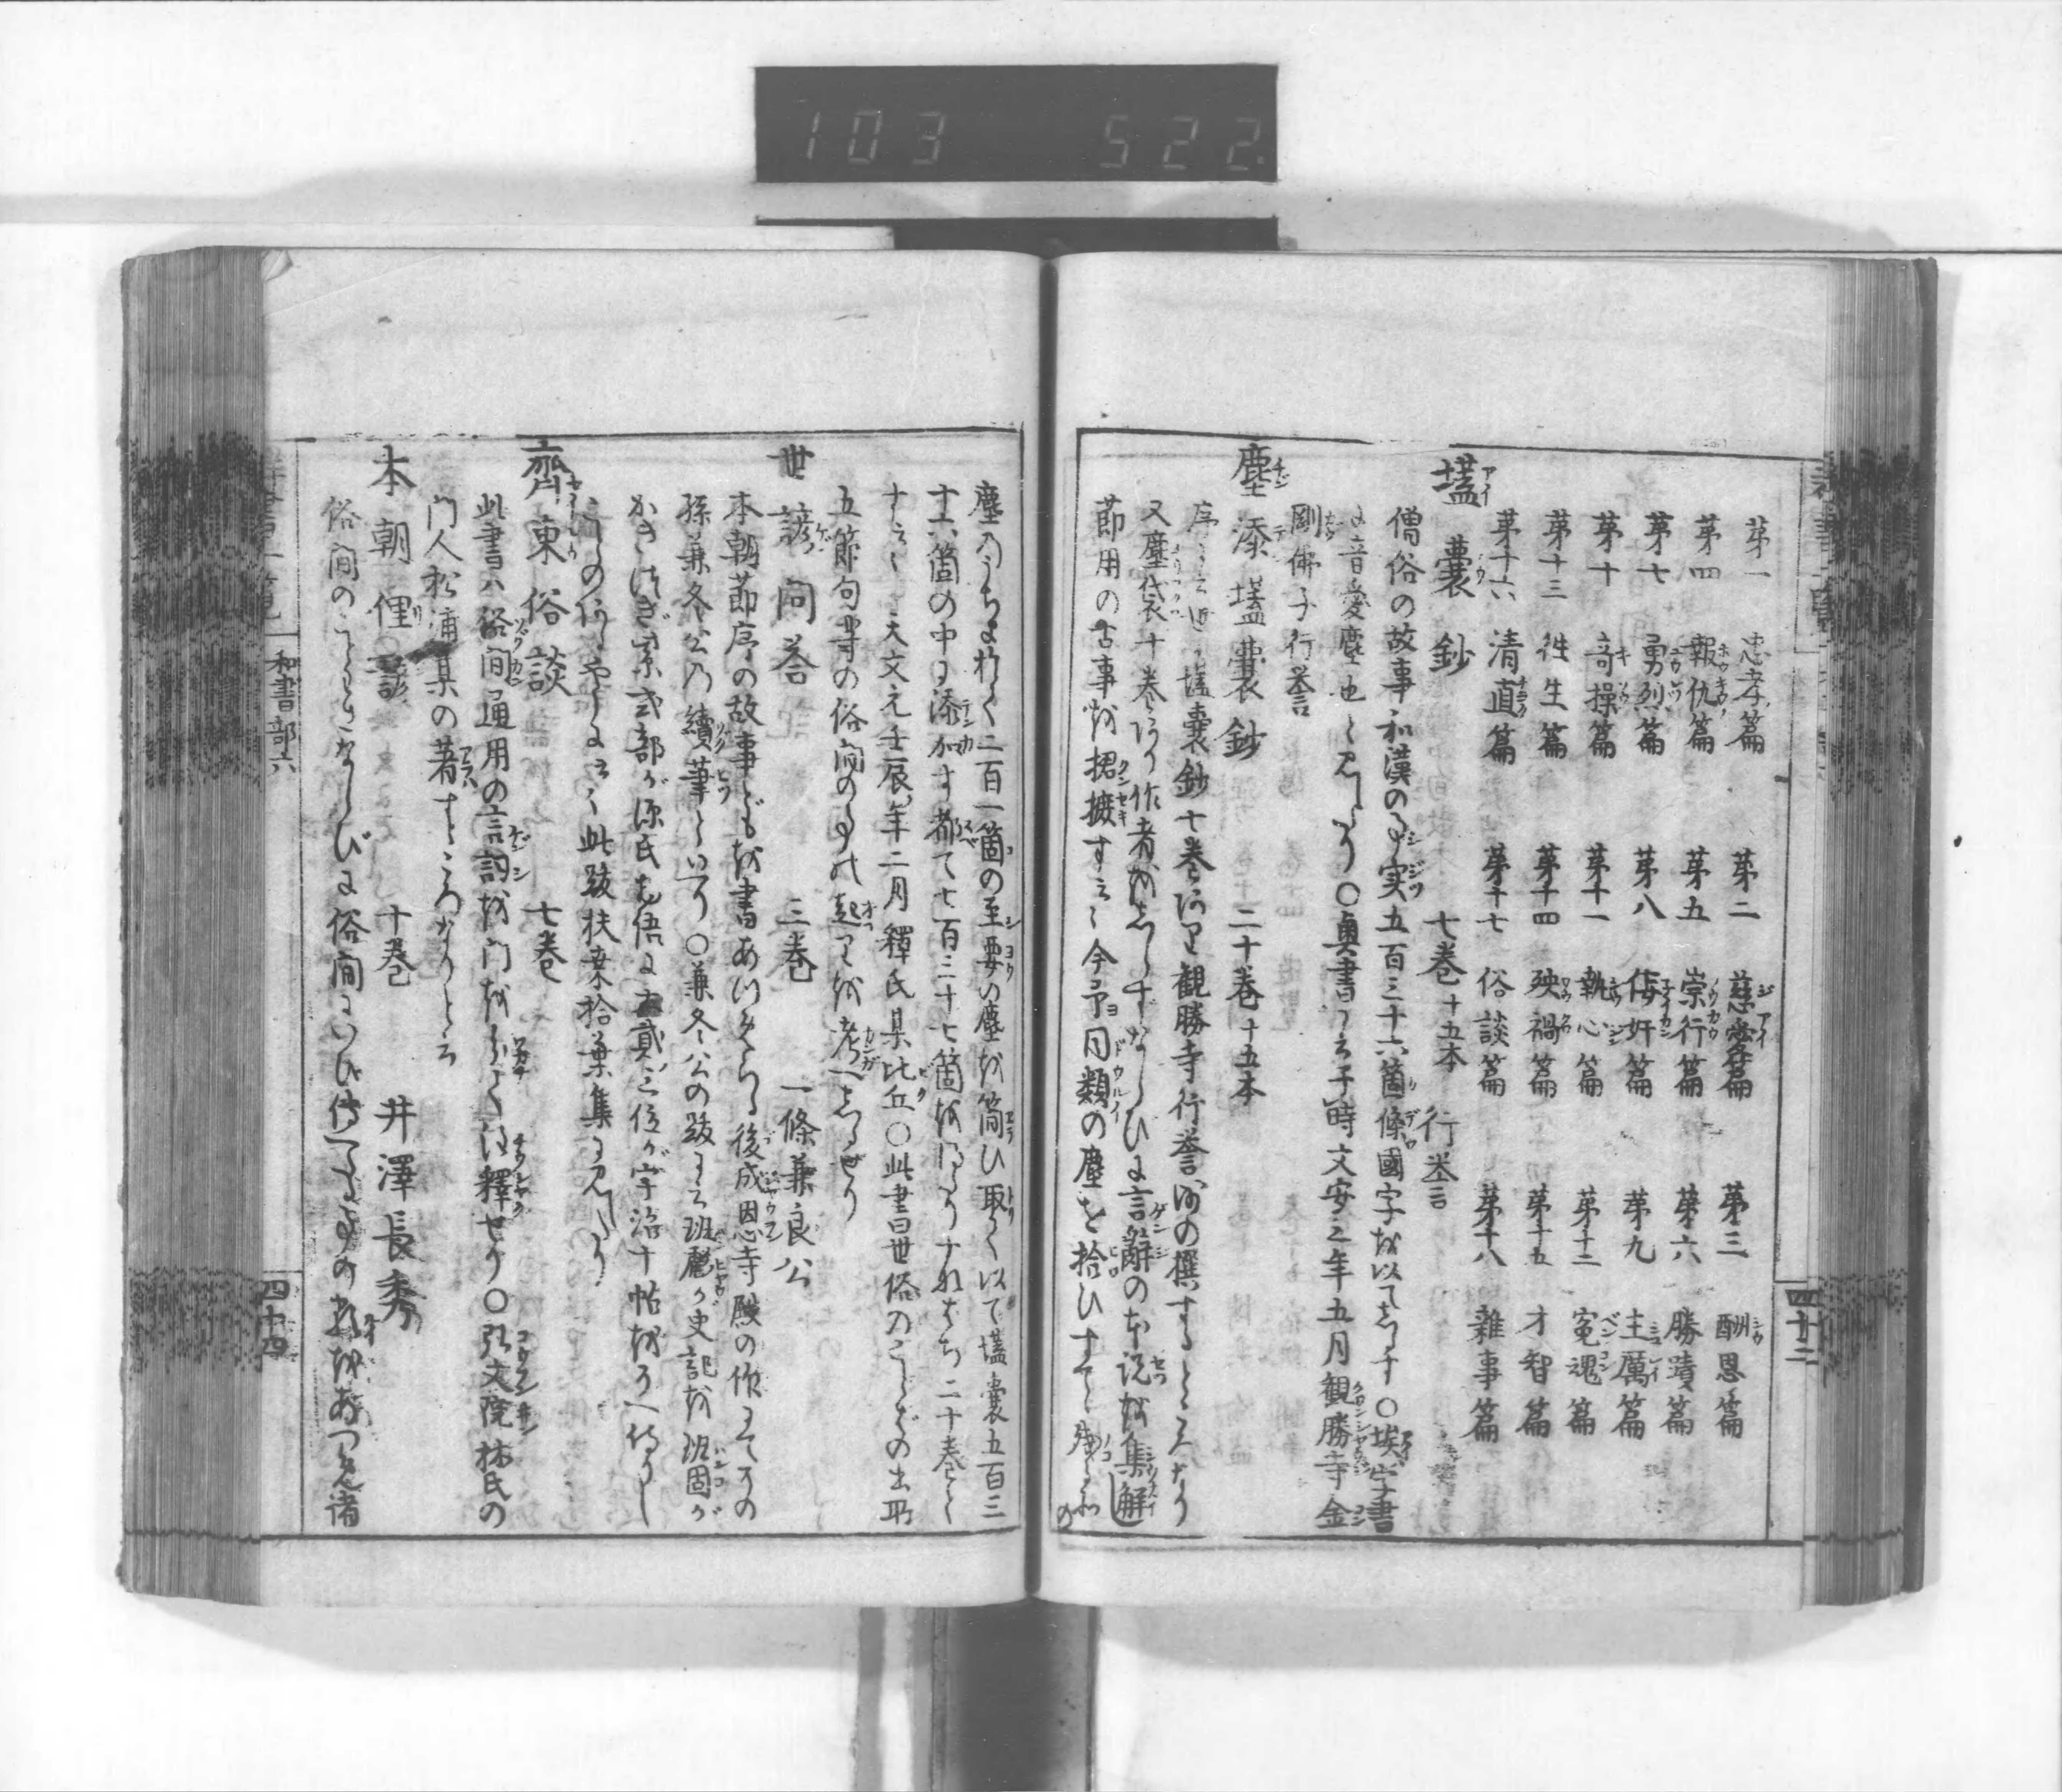 103 522
第一 忠孝篇 第二 慈愛篇 第三 酬恩篇
第四 報仇篇 第五 崇行篇 第六 勝蹟篇
第七 勇烈篇 第八 侮奸篇 第九 主厲篇
第十 奇操篇 第十一 執心篇 第十二 寃魂篇
第十三 徃生篇 第十四 殃禍篇 第十五 才智篇
第十六 清直篇 第十七 俗談篇 第十八 雜事篇
壒囊鈔 七巻 十五本 行誉
僧俗の故事和漢の事実五百三十六箇條國字を以てしるす〇埃字書
に音愛塵也と見えたり〇奥書ニ云于時文安三年五月観勝寺金
剛佛子行誉
塵添壒囊鈔 二十巻 十五本
序に云近く壒囊鈔七巻あり観勝寺行誉の撰する所なり
又塵袋十巻あり作者をしらずならびに言辭の本説を集解し
節用の古事を捃摭す云云今予同類の塵を拾ひすてて残れるの
塵のうちに於て二百一箇の至要の塵を簡ひ取て以て壒囊五百三
十六箇の中に添加す都て七百三十七箇を得たりすなはち二十巻と
す云云大文元壬辰年二月釋氏某比丘〇此書曰世俗のことばの出所
五節句等の俗間の事の起りを考へしるせり
世諺問答 三巻 一條兼良公
本朝節序の故事どもを書あつめたる後成恩寺殿の作にてその
孫兼冬公の續筆といへり〇兼冬公の跋に云班彪が史記を班固が
かきつぎ紫式部が源氏物语に大貳三位が宇治十帖をそへ侍りし
此跋扶桑拾葉集に見へたり
齊東俗談 七巻
此書ハ俗間通用の言詞を門を分て注釋せり〇弘文院林氏の
門人松浦某の著すところなりと云
本朝俚諺 十巻 井澤長秀
俗間のことわざならびに俗間にいひ傳へたる事の類をあつめ諸
和書部六
四十四
四十三